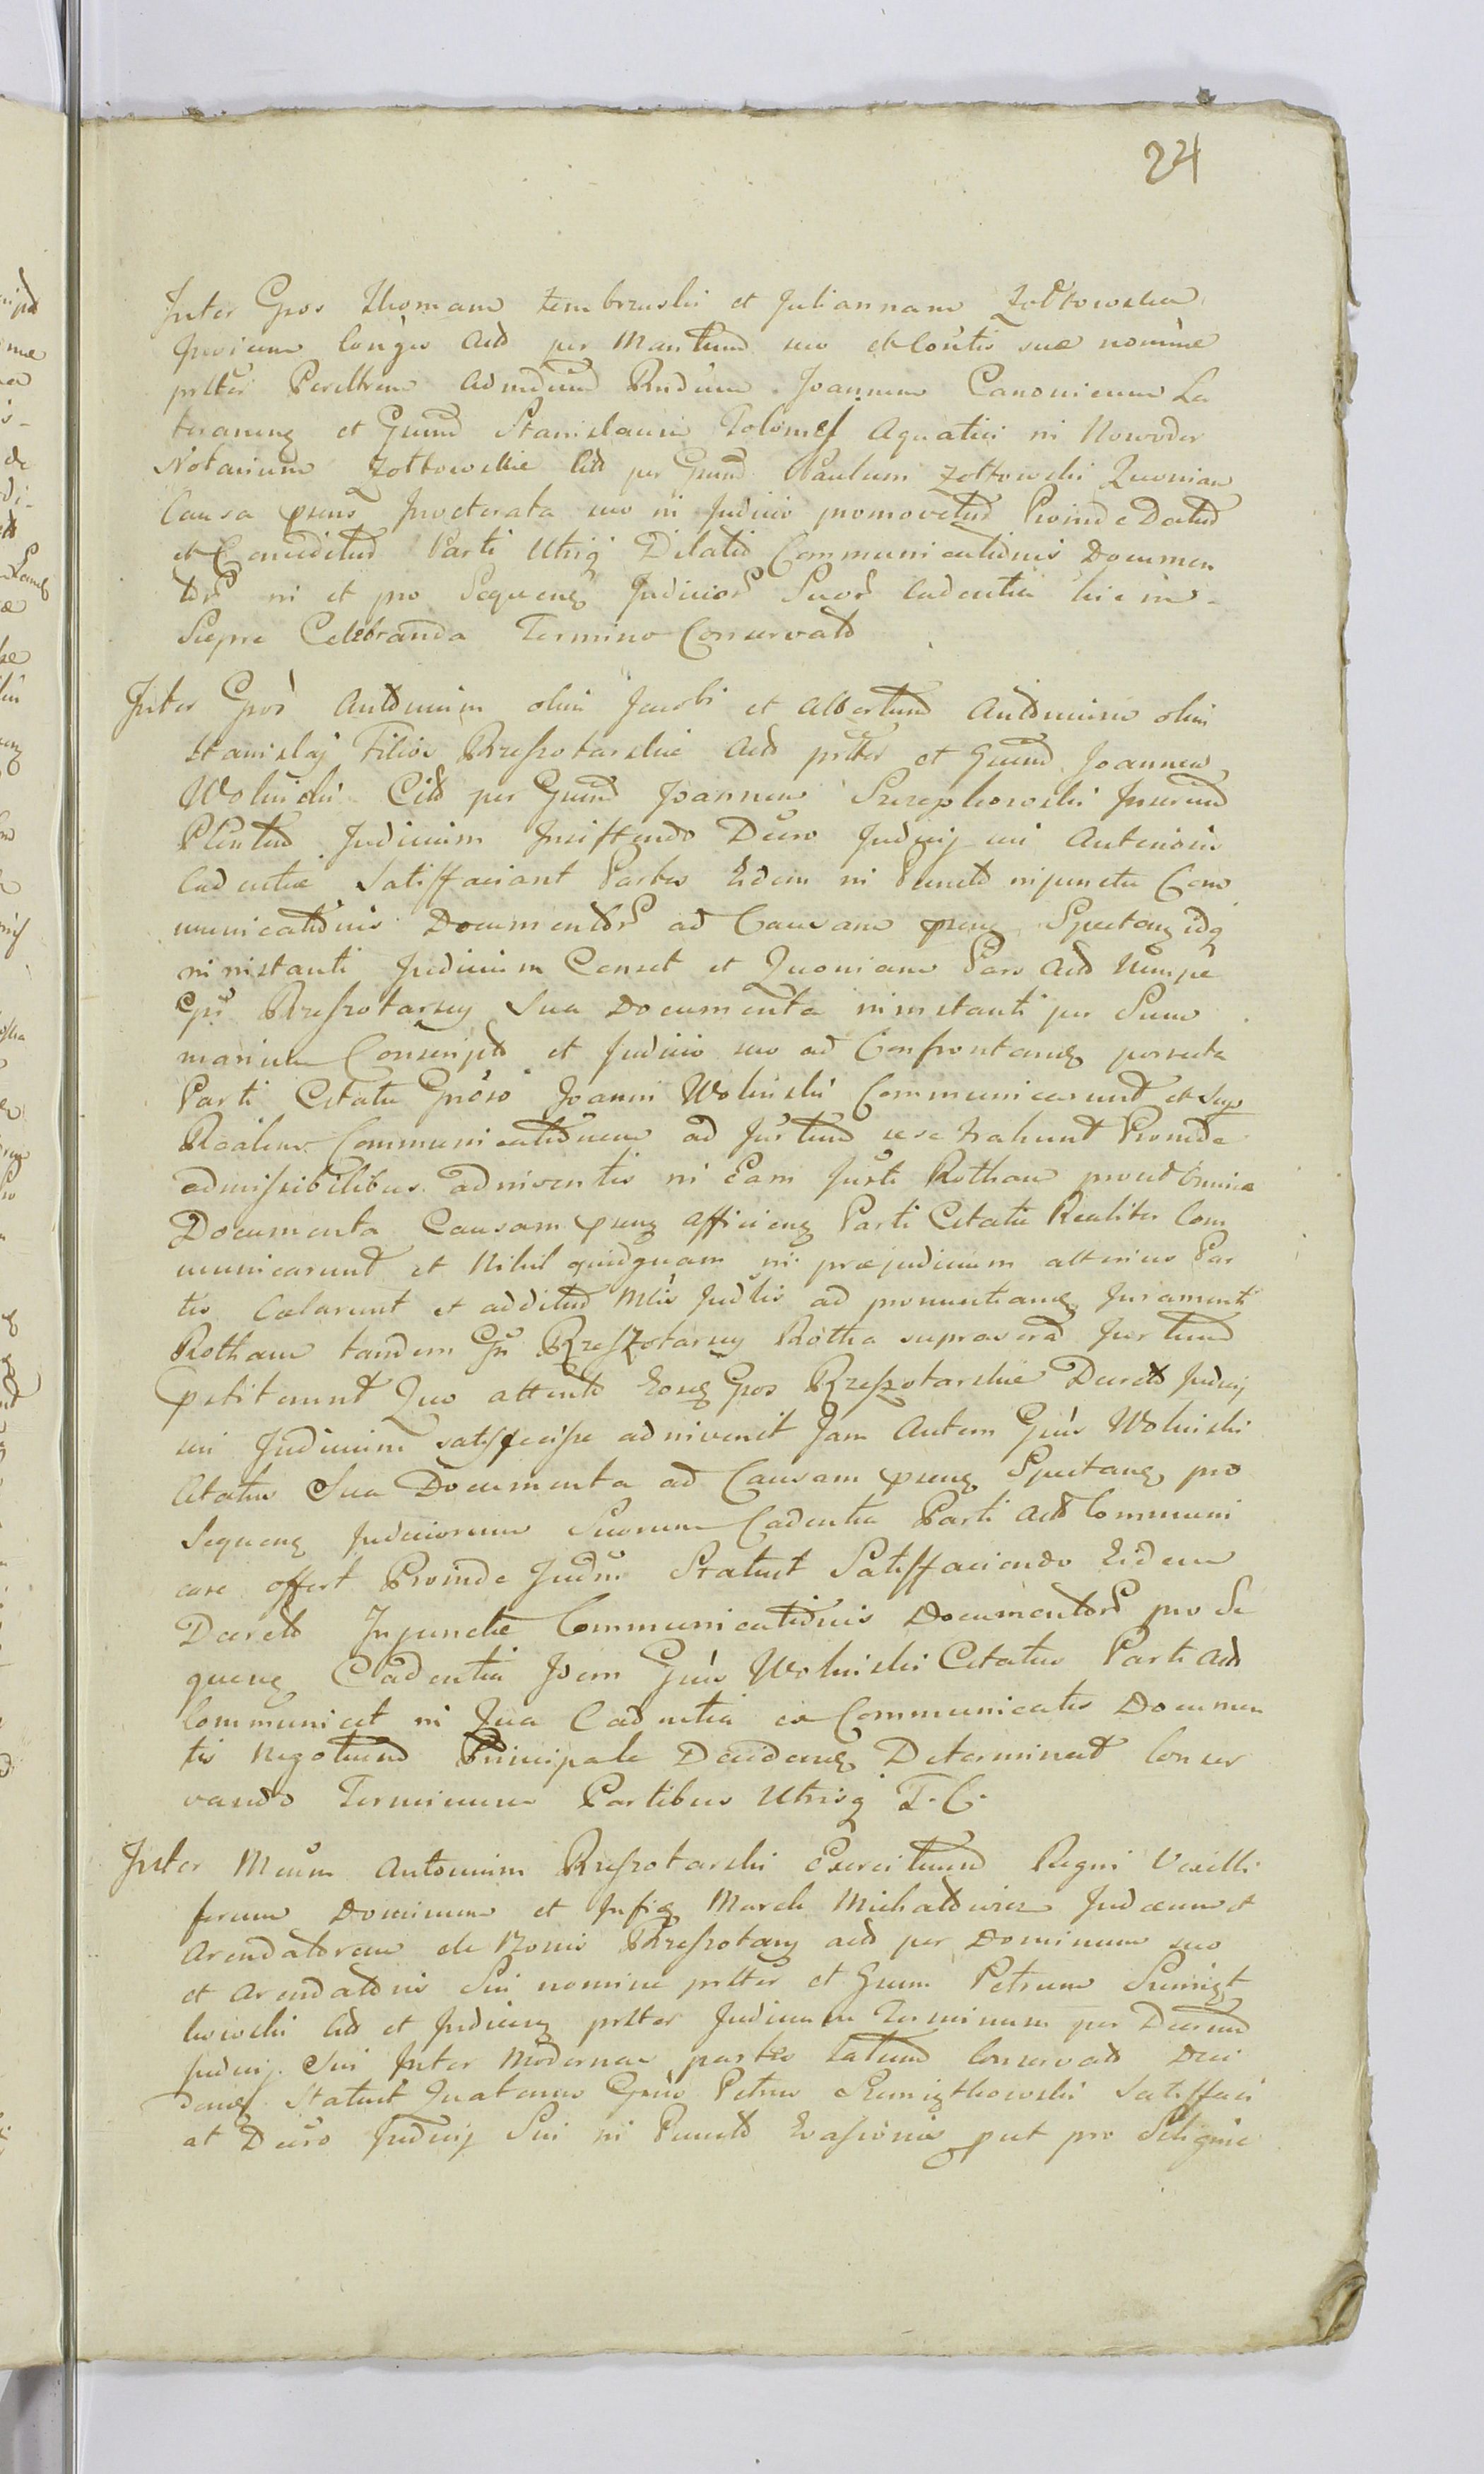 24
Inter Gnos Thomam Zembrzuski et Juliannam Zołtowska
Conges Act per Maritum suo et Contis suæ nomine
prltter Perillrem Admdum Rndum Joannem Canonicum La
teraneng et Gnum Stanislaum Aquatici in Nowodor
Notarium Zołtowskie Citt per Gnum Paulum Zołtowski Quoniam
Causa præns in Judicio promovetur Proinde Datur
et Conceditur Parti Utriq Dilatio Communicationis Documen
torŕ in et pro Sequeng Judiciorŕ Suorŕ Cadentia hic in
Supra Celebranda Termino Conservato
Inter Gnos Antonium olim Jacobi et Albertum Antonium olim
Stanislaj Filios Krzeszotarskie Act prltter et Gnum Joannem
Woliński Citt per Gnum Joannem Szczepkowski
Plentem Judicium Insistendo Dcro Judicij sui Anterioris
Cadentiæ Satisfaciant Partes Eidem in Puncto injunctæ Com
municationis Documentorŕ ad Causam præng Spectang idq
in instanti Judicium Censet et Quoniam Pars Act Nempe
Gni Krzeszotarscy Sua Documenta in instanti per Sum
marium Conscripta et Judicio suo ad Confrontang porrecta
Parti Citatæ Gnoso Joanni Woliński Communicarunt et Sup
Realem Communicationem ad Justum sese trahunt Proinde
admissibilibus adinventis in Eam Justi Rotham prout Omnia
Documenta Causam præng afficieng Parti Citatæ Realiter Com
municarunt et Nihil quidquam in præjudicium alterius Par
tis Celarunt et additus Mtis Judlis ad pronuntiang Juramenti
Rotham tandem Gni Krzeszotarscy Rotha supra
petiterunt Quo attento Eosq Gnos Krzeszotarskie Decreto Judicij
sui Judicium satisfecisse adinvenit Jam Autem Gnus Woliński
Citatus Sua Documenta ad Causam præng Spectang pro
Sequeng Judiciorum Suorum Cadentia Parti Act Communi
care offert Proinde Judm Statuit Satisfaciendo Eidem
Decreto Injunctæ Communicationis Documentorŕ pro Se
queng Cadentia Idem Gnus Woliński Citatus Parti Act
Communicet in Qua Cadentia ex Communicatis Documen
tis Negotium Principale Decideng Determinat Conser
vando Terminum Partibus Utrisq T. C.
Inter Mcum Antonium Krzeszotarski Exercituum Regni Vexilli
ferum Dominum et Infiq Marek Michałowicz Judæum et
Arendatorem de Bonis Krzeszotary act per Dominum suo
et Arendatoris Sui nomine prltter et Gnum Petrum
Citt et Judicing prltter Judicium Terminum per Decretum
Judicij Sui Inter Modernas partes latum Conservato Deci
deng Statuit Quatenus Gnus Petrus Satisfaci
at Dcro Judicij Sui in Puncto Evasionis put pro Siligine